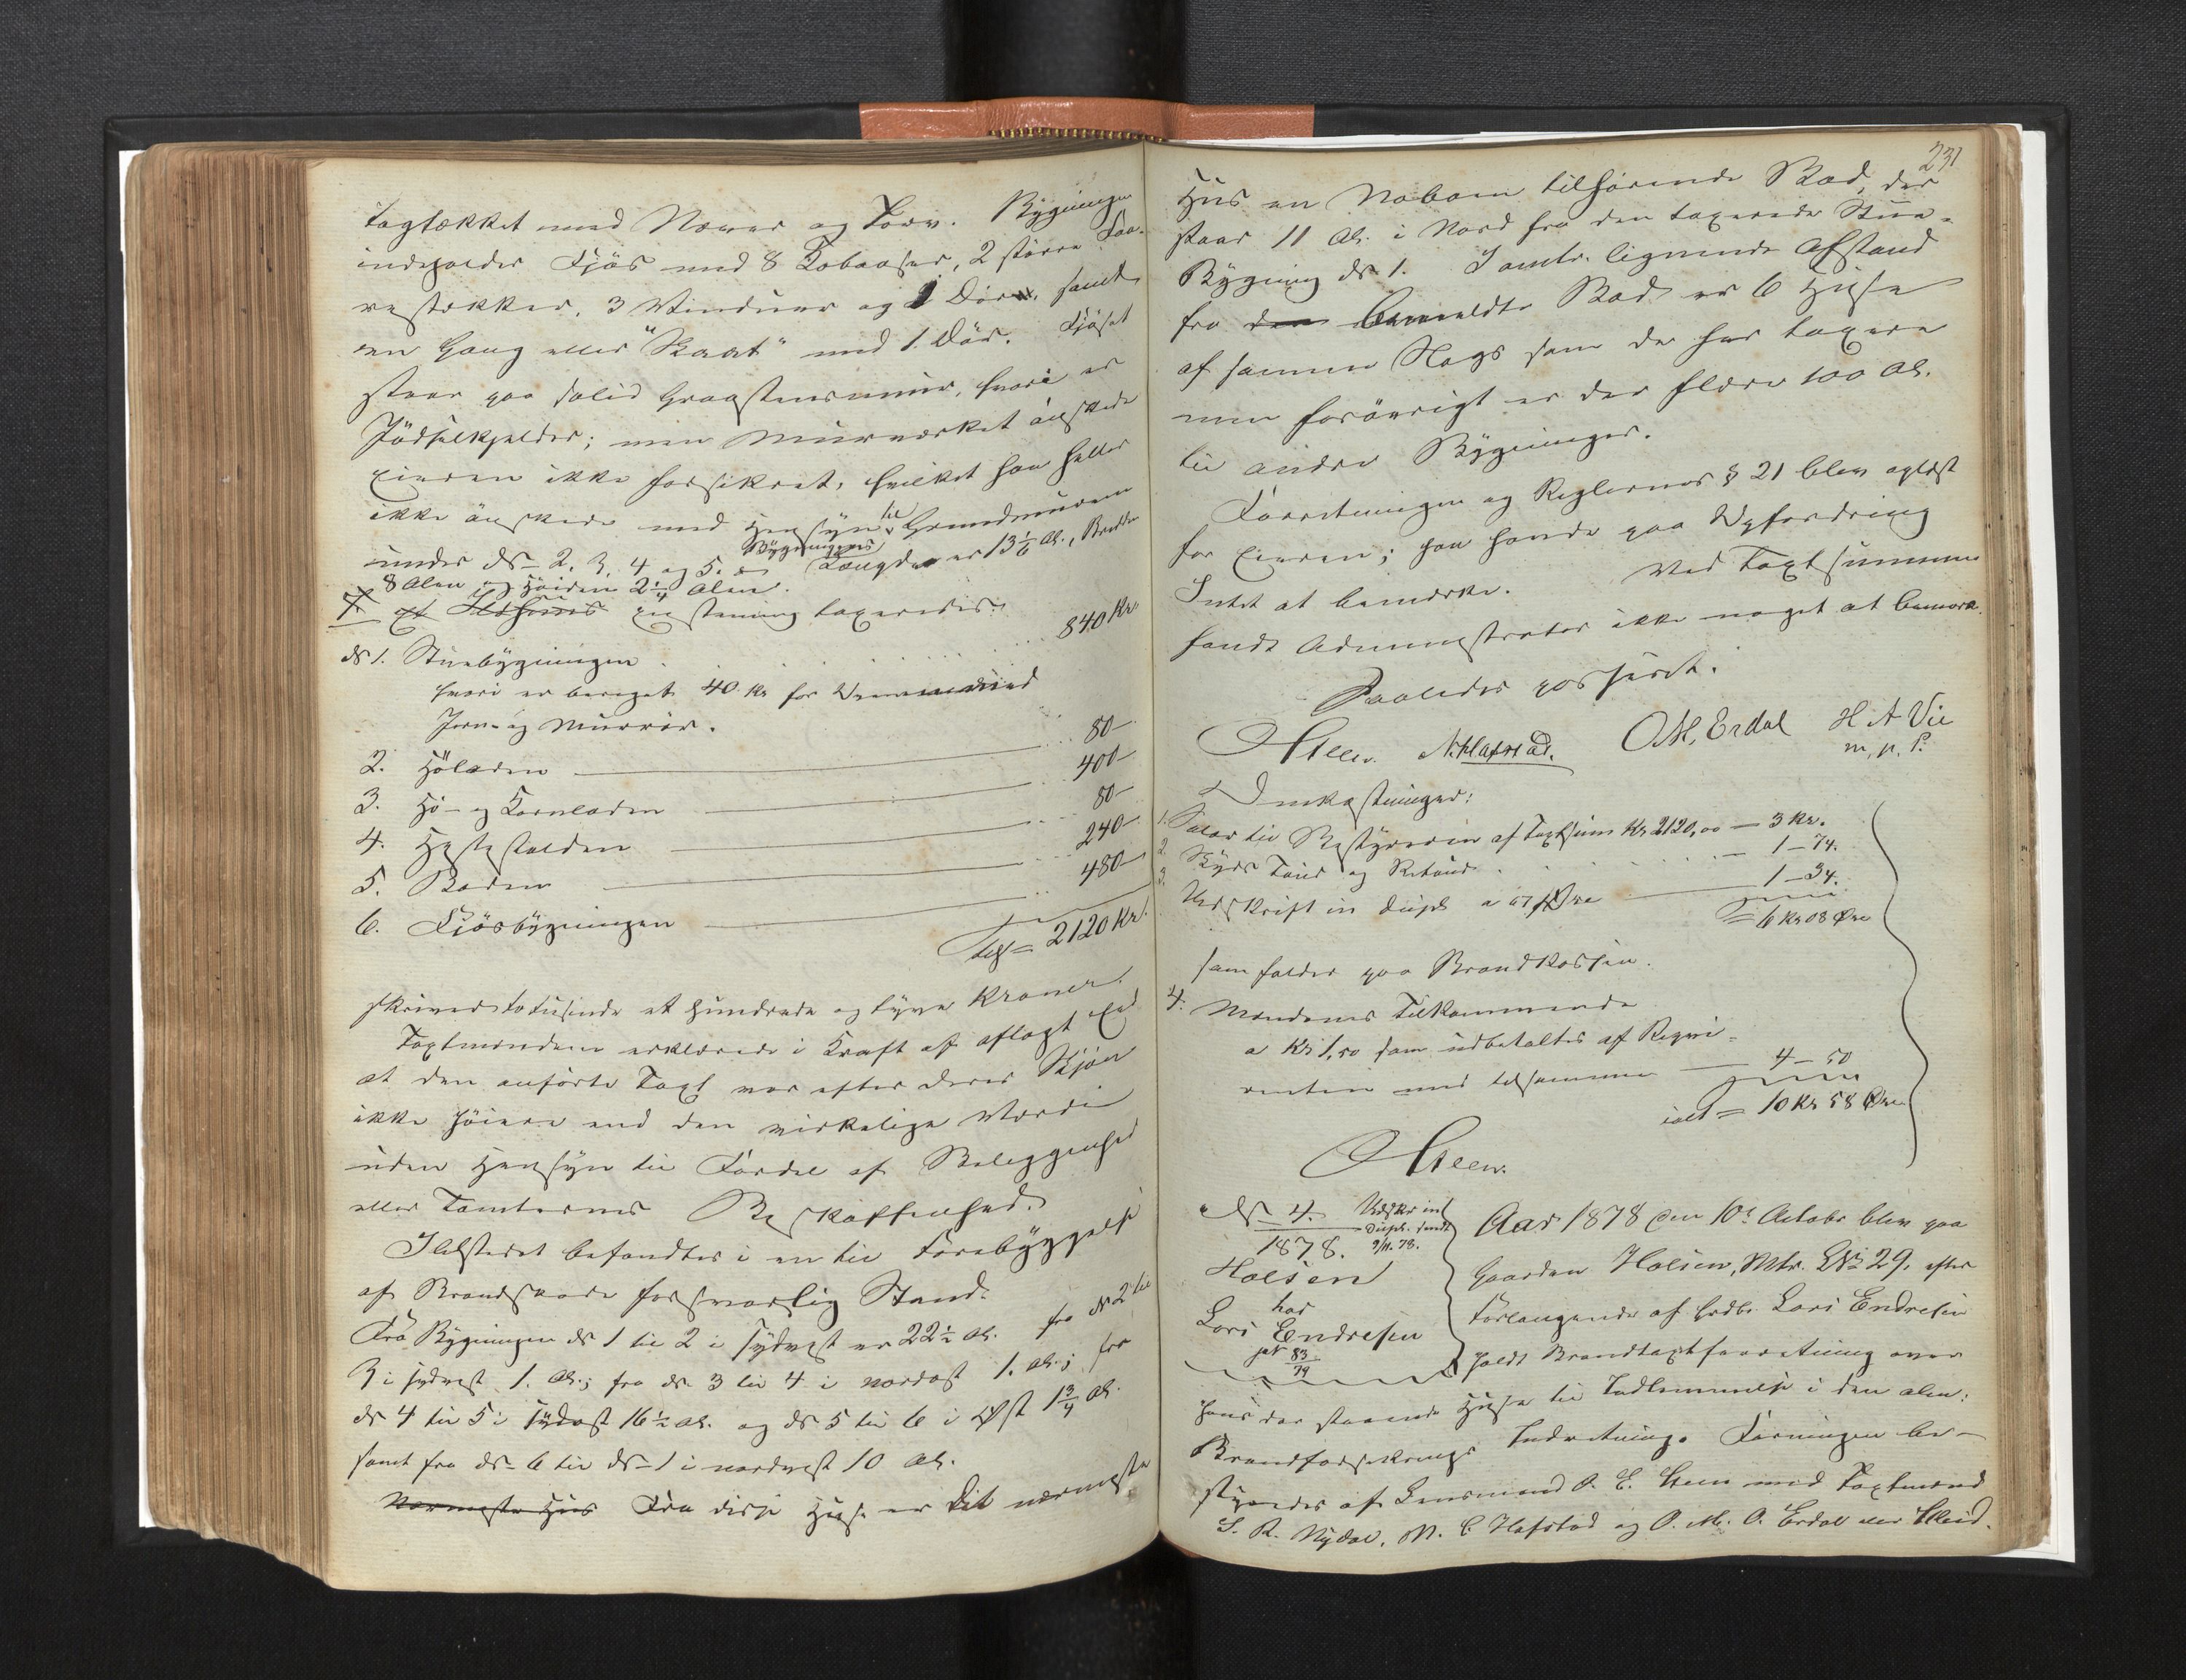 tagtækket med Næver og Torv. Bygningen
indeholder Fjøs med 8 Kobaaser, 2 større Faa-
restækker, 3 Vinduer og 1 Dør, samt
en Gang eller "Skaat" med 1 Dør. Fjøset
staar paa solid Graastensmuur, hvori er
Gjødselkjelder; men Muurværket ønskede
Eieren ikke forsikret, hvilket han heller
ikke ønskede med Hensyn til Grundmurene
under No 2, 3, 4 og 5. Bygningens Længde er 13 1/6 Al., Bredden
8 Alen og Høiden 2 1/4 Alen.
taxeredes:
No 1. Stuebygningen . . . 840 Kr.
hvori er beregnet 40 Kr for
Jern- og Muurrør.
2. Høladen 80 —
3. Hø- og Kornladen 400 —
4. Hestestalden 80 —
5. Boden 240 —
6. Fjøsbygningen 480 —
= 2120 Kr.
skriver totusinde et hundrede og tyve Kroner.
Taxtmændene erklærede i Kraft af aflagt Ed
at den anførte Taxt var efter deres Skjøn
ikke høiere end den virkelige Værdi
uden Hensyn til Fordel af Beliggenhed
eller Tomternes Beskaffenhed.
Ildstedet befandtes i en til Forebyggelse
af Brandskade forsvarlig Stand.
Fra Bygningen No 1 til 2 i Sydvest er 22 1/2 Al. fra No 2 til
3 i sydvest 1. Al.; fra No 3 til 4 i nordost 1. Al.; fra
No 4 til 5 i Sydost 16 1/2 Al. og No 5 til 6 i Øst 1 3/4 Al.
samt fra No 6 til No 1 i nordvest 10 Al.
Nærmeste Huus Fra disse Huse er Dit nærmeste
231
Huus en Naboen tilhørende Bod, der
staar 11 Al. i Nord fra den taxerede Stue-
Bygning No 1. I omtr. lignende Afstand
fra den bemeldte Bod er 6 Huse
af samme Slags som de her taxere
men forøvrigt er der flere 100 Al.
til andre Bygninger.
Forretningen og Reglernes § 21 blev oplæst
for Eieren; han havde paa Opfordring
Intet at bemærke. Ved Taxtsummen
fandt Administrator ikke noget at bemærke.
Saaledes passeret.
Steen. N. Hafstad. O. M. Erdal H A Vie
m. p. P.
Omkostninger:
1. Salær til Bestyreren af Taxtsum Kr 2120,00 — 3 Kr.
2. Skyds Tour og Retour . . . 1 — 74.
3. Udskrift in dupl. a 67 Øre 1 — 34.
= 6 Kr 08 Øre
som falder paa Brandkassen.
4. Mændenes Tilkommende
a Kr 1,50 som udbetaltes af Reqvi-
renten med tilsammen 4 — 50
ialt = 10 Kr 58 Øre
Steen.
No 4. Udskr in
1878. dupl. sendt
9/11. 78.
Holsen
Lars Endresen
har
No 83
79
Aar 1878 den 10de Octobr blev paa
Gaarden Holsen, Mtr. LNo 29. efter
Forlangende af Grdbr. Lars Endresen
holdt Brandtaxtforretning over
hans der staaende Huse til Indlemmelse i den alm:
Brandforsikrings Indretning. Forretningen be-
styredes af Lensmand O. E. Steen med Taxtmænd
S. R. Nydal, M. C. Hafstad og O. M. O. Erdal